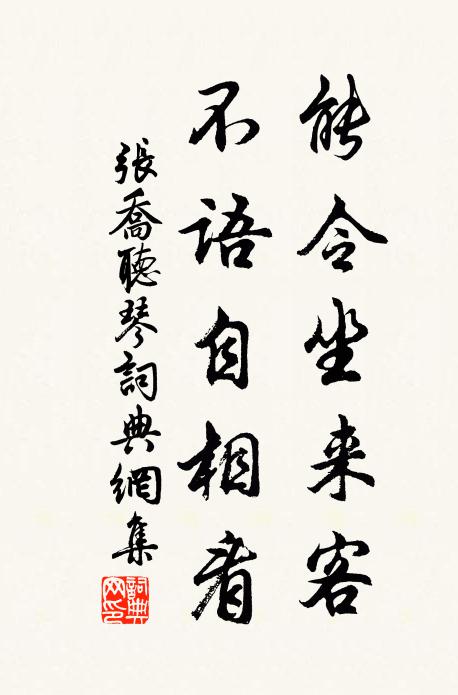 能令坐来客
不語自相看
張喬聽琴詞典網集
詞典網印